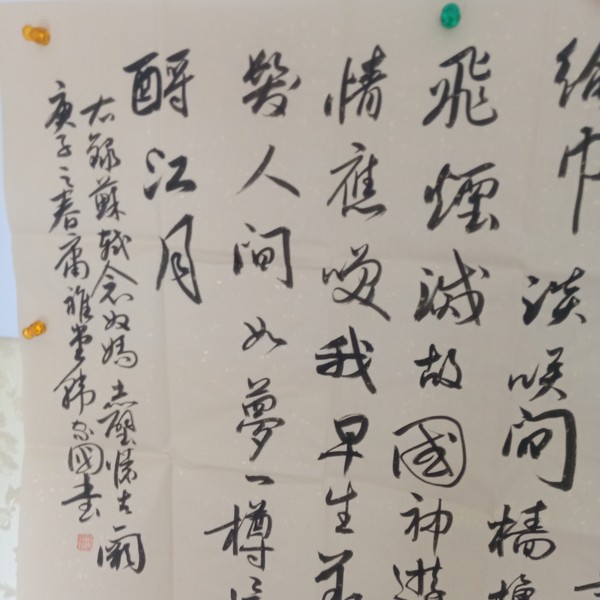 綸巾談咲間檣
飛煙滅故國神遊
情應咲我早生華
髮人間如夢一樽
酹江月
右錄蘇軾念奴嬌赤壁懷古一闋
庚子之春雅堂國書